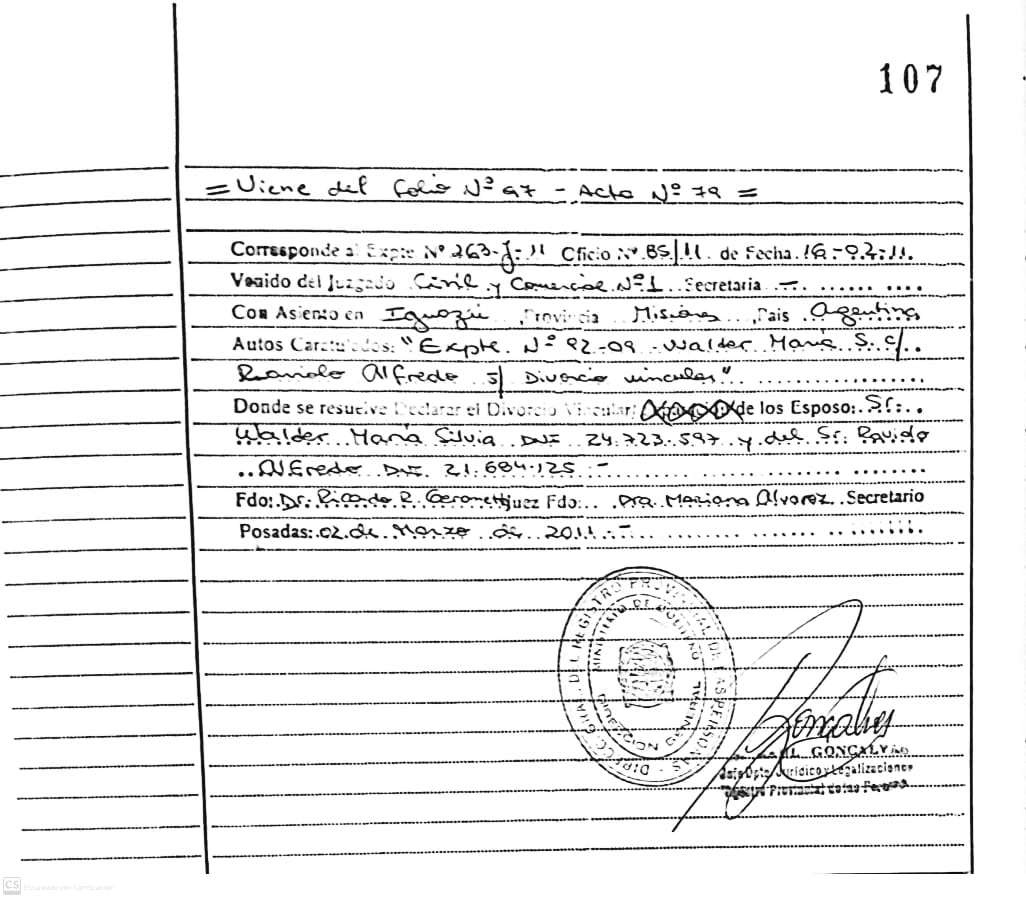 107
= Viene del folio Nº 97 - Acta Nº 79 =
Corresponde al Expte Nº 263-J-11 Oficio Nº 85/11. de Fecha. 16-02-11.
Venido del Juzgado Civil y Comercial Nº 1 Secretaria -
Con Asiento en Iguazú, Provincia Misiones, Pais Argentina
Autos Caratulados: "Expte. Nº 92-09 - Walder María S. c/
Ravido Alfredo s/ Divorcio vincular"
Donde se resuelve Declarar el Divorcio Vincular; de los Esposo: Sr:
Walder María Silvia DNI 24.723.597 y del Sr. Ravido
Alfredo DNI. 21.684.125 -
Fdo: Dr. Ricardo R. Geronetti Juez Fdo: Dra. Mariana Alvarez. Secretario
Posadas: 02 de Marzo de 2011 -
DIRECC. GRAL. DEL REGISTRO PROVINCIAL DE LAS PERSONAS
MINISTERIO DE GOBIERNO
GONCALVES
Jefe Dpto. Jurídico y Legalizaciones
Registro Provincial de las Personas
CS Escaneado con CamScanner